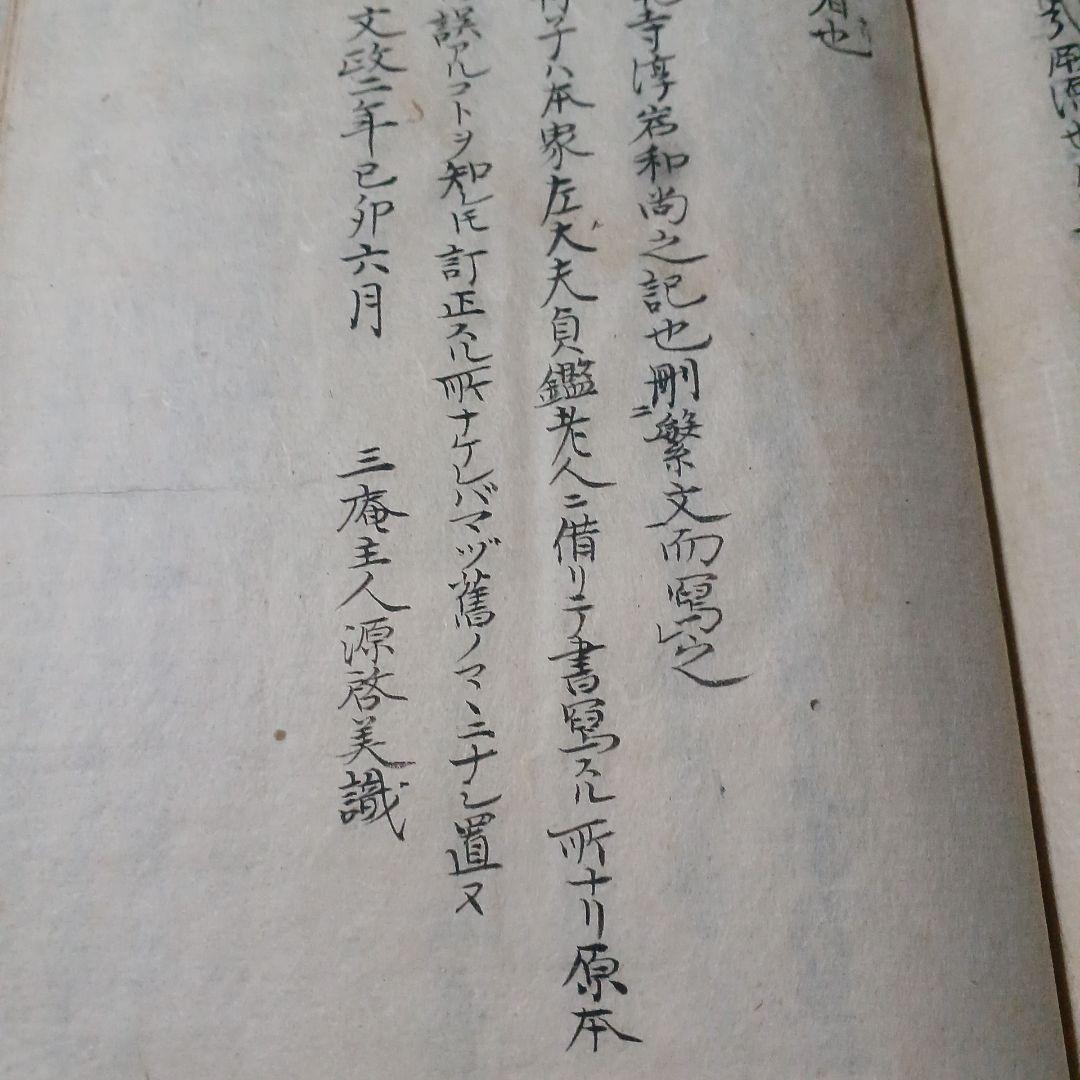 者也
寺淳岩和尚之記也刪ニ繁文而寫之
子ハ本家左大夫貞鑑老人ニ借リテ書寫スル所ナリ原本
誤アルコトヲ知レ𪜈訂正スル所ナケレバマヅ舊ノマヽニナシ置ヌ
文政二年己卯六月 三庵主人源啓美識